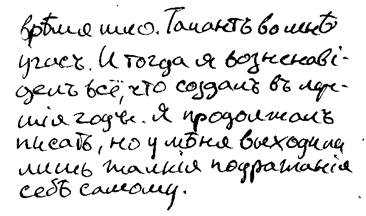 врѣмя шло. Талантъ во мнѣ
угасъ. И тогда я возненави-
дѣлъ всё, что создалъ въ луч-
шія годы. Я продолжалъ
писать, но у мѣня выходили
лишь жалкія подражанія
себѣ самому.